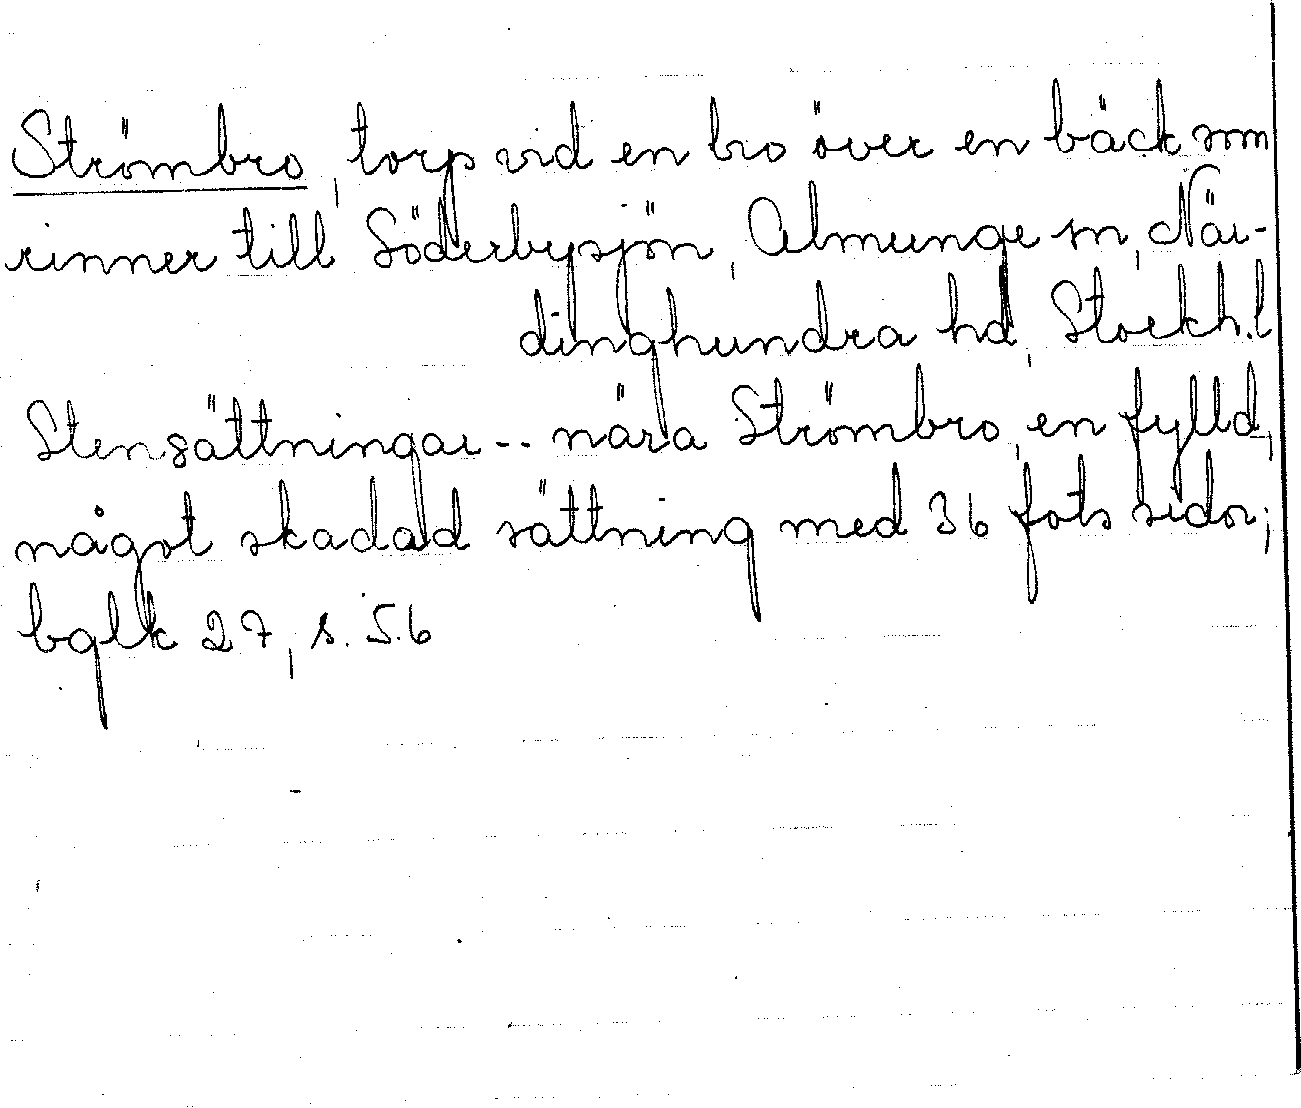 Strömbro, torp vid en bro över en bäck som
rinner till Söderbysjön, Almunge sn, När-
dinghundra hd, Stockh.l
Stensättningar -- nära Strömbro, en fylld,
något skadad sättning med 36 fots sidor;
bglk 27, s. 56